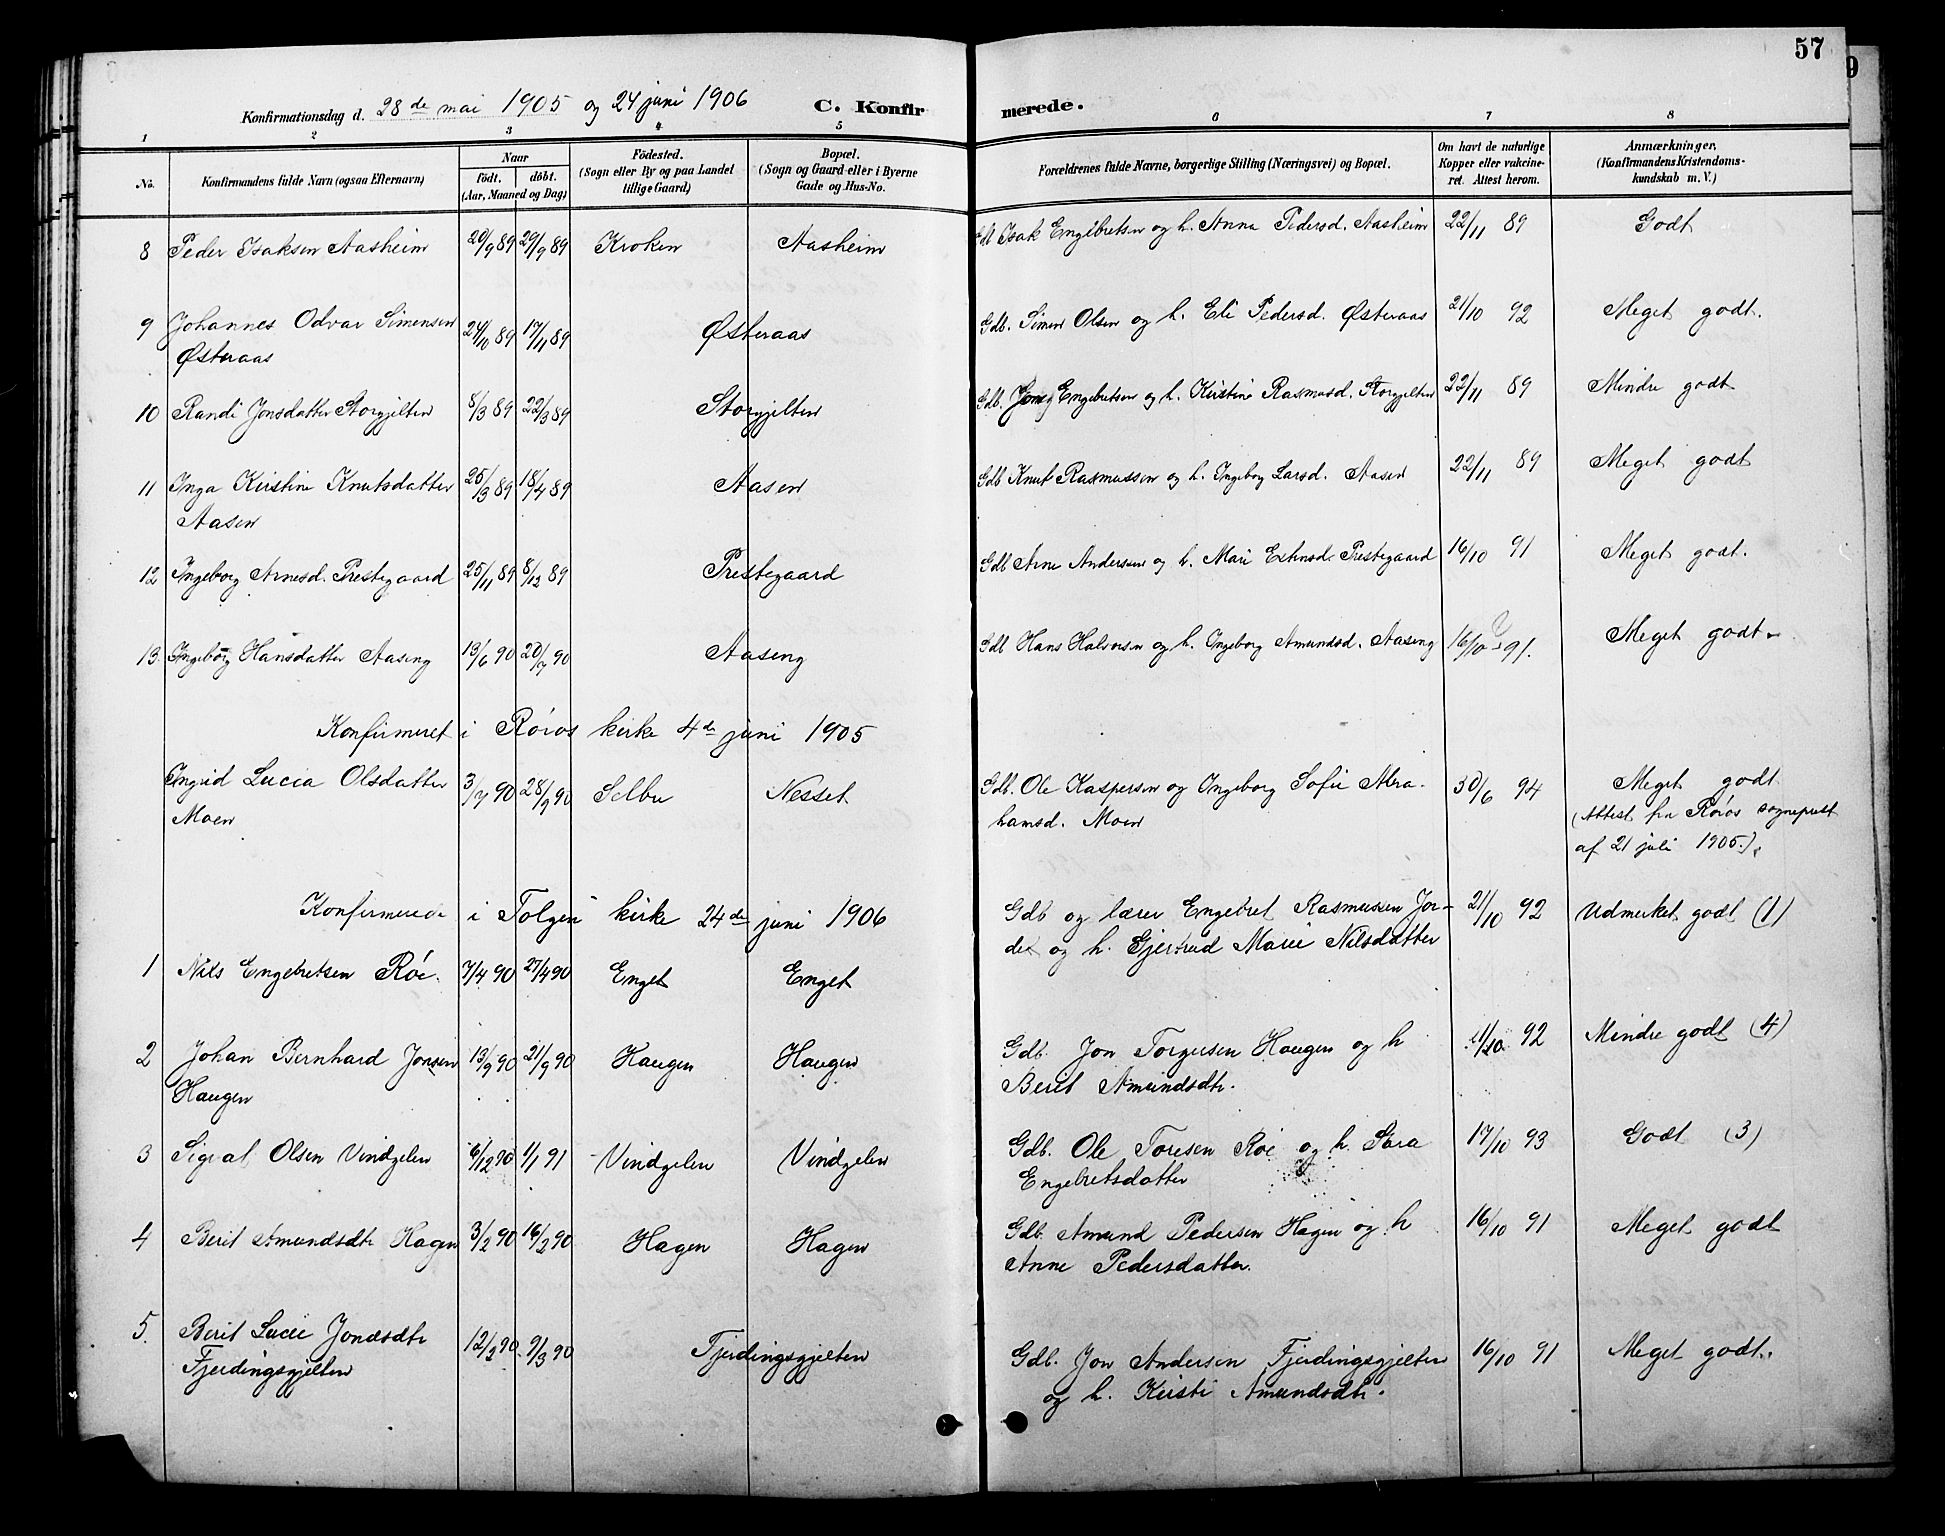 57
9
Konfirmationsdag d. 28de mai 1905 og 24 juni 1906 C. Konfirmerede.
1 2 3 4 5 6 7 8
No.
Konfirmandens fulde Navn (ogsaa Efternavn)
Naar
födt. döbt.
(Aar, Maaned og Dag)
Födested.
(Sogn eller By og paa Landet
tillige Gaard)
Bopæl.
(Sogn og Gaard eller i Byerne
Gade og Hus-No.
Forældrenes fulde Navne, borgerlige Stilling (Næringsvei) og Bopæl.
Om havt de naturlige
Kopper eller vakcine-
ret. Attest herom.
Anmærkninger.
(Konfirmandens Kristendoms-
kundskab m. V.)
8 Peder Isaksen Aasheim 20/9 89 29/9 89 Kroken Aasheim Gdb Isak Engebretsen og h. Anna Pedersd. Aasheim 22/11 89 Godt
9 Johannes Odvar Simensen 24/10 89 17/11 89 Østeraas Gdb. Simen Olsen og h. Eli Pedersd. Østeraas 21/10 92 Meget godt.
Østeraas
10 Randi Jonsdatter Storgjelten 8/3 89 22/3 89 Storgjelten Gdb. Jons Engebretsen og h. Kirstine Rasmusd. Storgjelten 22/11 89 Mindre godt
11 Inga Kirstine Knutsdatter 25/3 89 18/4 89 Aasen Gdb Knut Rasmussen og h. Ingeborg Larsd. Aasen 22/11 89 Meget godt
Aasen
12 Ingeborg Arnesd. Prestegaard 25/11 89 8/12 89 Prestegaard Gdb Arne Andersen og h. Mari Estensd. Prestegaard 16/10 91 Meget godt.
13. Ingeborg Hansdatter Aaseng 13/6 90 20/7 90 Aaseng Gdb Hans Halvorsen og h. Ingeborg Amundsd. Aaseng 16/10 91. Meget godt
Konfirmeret i Röros kirke 4de juni 1905
Ingrid Lucia Olsdatter 3/7 90 28/9 90 Selbu Nesset Gdb. Ole Kaspersen og Ingeborg Sofie Abra- 30/6 94 Meget godt
Moen hamsd. Moen (Attest fra Röros sogneprest
af 21 juli 1905.)
Konfirmerede i Tolgen kirke 24de juni 1906 Gdb og lærer Engebret Rasmussen Jor- 21/10 92 Udmerket godt (1)
det og h. Gjertrud Marie Nilsdatter
1 Nils Engebretsen Röe. 7/4 90 27/4 90 Enget Enget
2 Johan Bernhard Jonsen 13/9 90 21/9 90 Haugen Haugen Gdb. Jon Torgersen Haugen og h 92 Mindre godt (4)
Haugen Berit Amundsdtr.
3 Sigvat Olsen Vindgelen 6/12 90 1/1 91 Vindgelen Vindgelen Gdb. Ole Toresen Röe og h. Sara 17/10 93 Godt (3)
Engebretsdatter
4 Berit Amundsdtr Hagen 3/2 90 16/2 90 Hagen Hagen Gdb. Amund Pedersen Hagen og h 16/10 91 Meget godt
Anne Pedersdatter.
5. Berit Lucie Jonasdtr 12/2 90 9/3 90 Fjerdingsgjelten Gdb. Jon Andersen Fjerdingsgjelten 16/10 91 Meget godt.
Fjerdingsgjelten og h. Kirsti Amundsdtr.